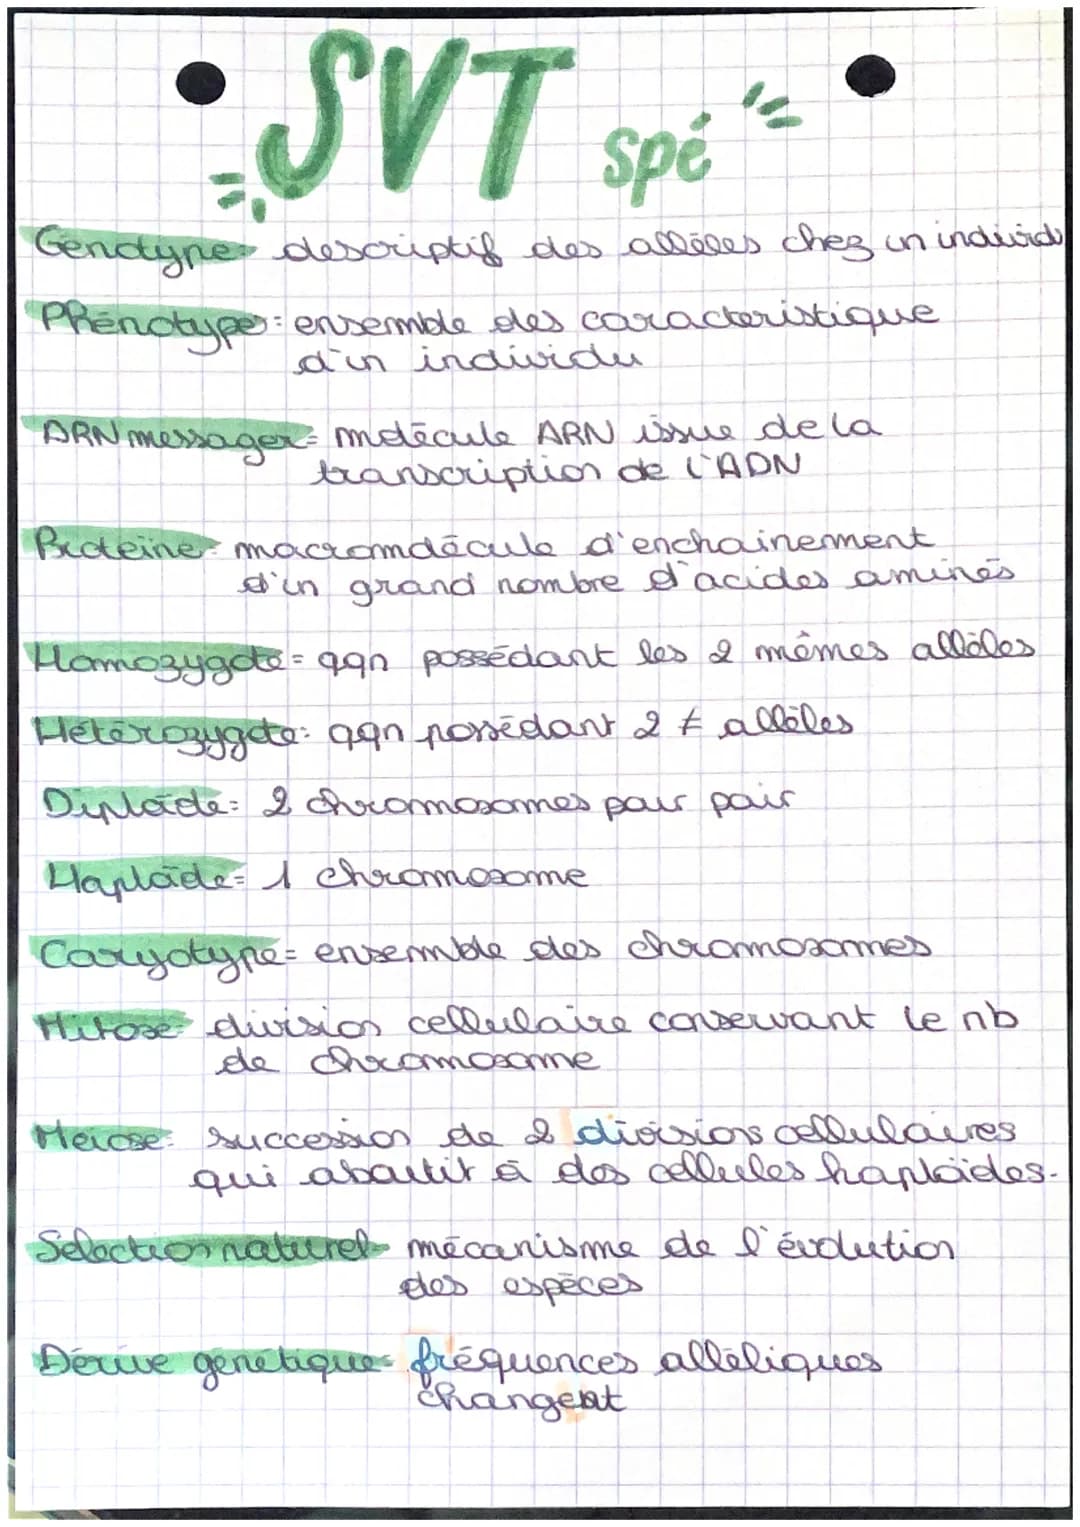 SVT spé
Génotype= descriptif des allèles chez un individu
Phénotype= ensemble des caractéristique
d'un individu
ARN messager= molécule ARN issue de la
transcription de l'ADN
Protéine= macromolécule d'enchainement
d'un grand nombre d'acides aminés
Homozygote= qqn possédant les 2 mêmes allèles
Hétérozygote= qqn possédant 2 ≠ allèles
Diploïde= 2 chromosomes pour pair
Haploïde= 1 chromosome
Caryotype= ensemble des chromosomes
Mitose= division cellulaire conservant le nb
de chromosome
Meiose= succession de 2 divisions cellulaires
qui aboutit à des cellules haploïdes.
Sélection naturel= mécanisme de l'évolution
des espèces
Dérive génétique= fréquences alléliques
changent